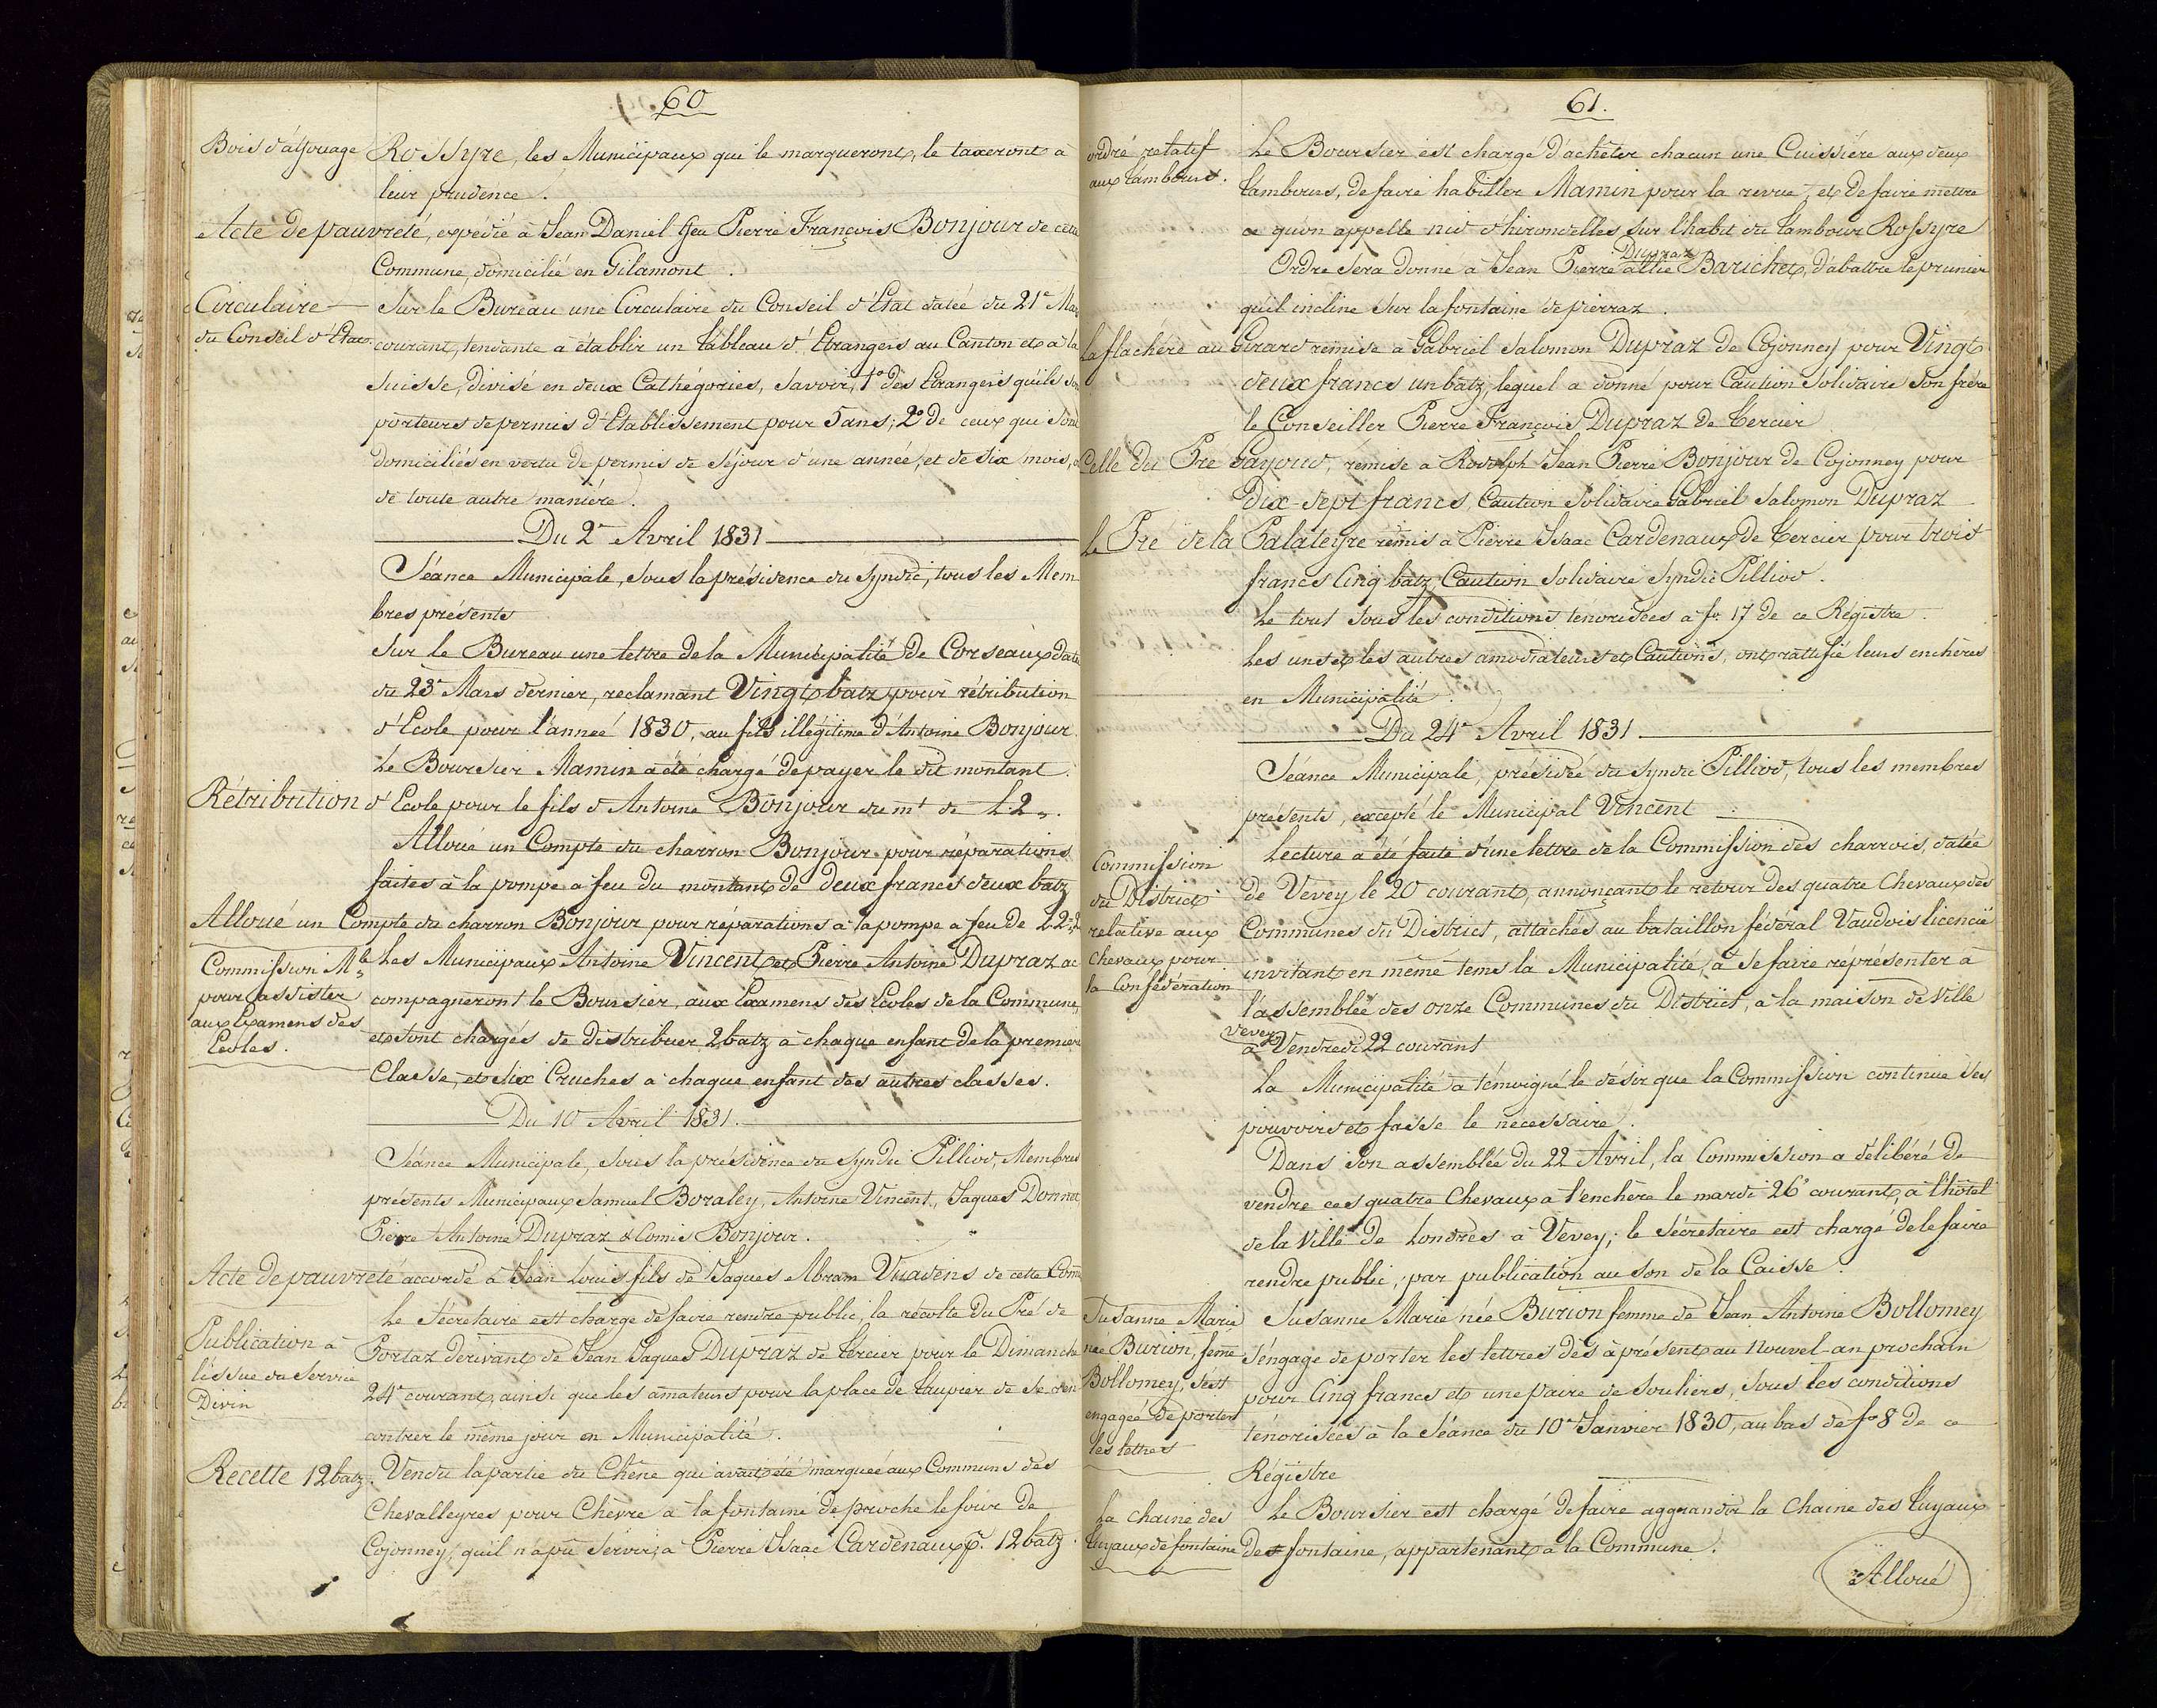 60
Bois d'affouage Rossyre, les Municipaux qui le marqueront, le taxeront à
leur prudence.
Acte de pauvreté, expédié à Jean Daniel feu Pierre François Bonjour de cette
Commune, domicilié en Gilamont.
Circulaire
du Conseil d'Etat.
Sur le Bureau une Circulaire du Conseil d'Etat datée du 21e Mars
courant, tendante a établir un tableau d'Etrangers au Canton et à la
Suisse, divisé en deux Cathégories, savoir, 1o des Etrangers qu'ils son
porteurs de permis d'Etablissement pour 5 ans; 2o de ceux qui sont
domiciliés en vertu de permis de Séjour d'une année, et de six mois, 
de toute autre maniére.
Du 2e Avril 1831
Séance Municipale, sous la présidence du Syndic, tous les Mem-
bres présents
Sur le Bureau une lettre de la Municipalité de Corseaux daté
du 23e Mars dernier, reclamant Vingt batz pour rétribution
d'Ecole pour l'année 1830, au fils illégitime d'Antoine Bonjour.
Le Boursier Mamin a été chargé de payer le dit montant.
Rétribution d'Ecole pour le fils d'Antoine Bonjour du mt de L.2„.
Alloué un Compte du charron Bonjour pour réparations
faites à la pompe a feu du montant de deux francs deux batz
Alloué un Compte du charron Bonjour pour réparations à la pompe a feu de L2„2
Commission Mle
pour assister
aux Examens des
Ecoles.
Les Municipaux Antoine Vincent et Pierre Antoine Dupraz ac
compagneront le Boursier, aux Examens des Ecoles de la Commune,
et sont chargés de distribuer 2 batz à chaque enfant de la premiere
Classe, et six Cruches a chaque enfant des autres classes.
Du 10 Avril 1831.
Séance Municipale, sous la présidence du Syndic Pilliod, Membres
présents Municipaux Samuel Boraley, Antoine Vincent, Jaques Donnet,
Pierre Antoine Dupraz & Comis Bonjour.
Acte de pauvreté accordé à Jean Louis fils de Jaques Abram Vuadens de cette Com
Publication à
l'issue du Service
Divin
Le Sécretaire est chargé de faire rendre public, la récolte du Pré de
Portaz dérivant de Jean Jaques Dupraz de Tercier pour le Dimanche
24e courant, ainsi que les amateurs pour la place de Taupier de se ren
contrer le même jour en Municipalité.
Recette 12 batz.
Vendu la partie du Chêne qui avait été marquée aux Communs des
Chevalleyres pour Chèvre a la fontaine de proche le four de
Cojonney, qu'il n'a pu servir, a Pierre Isaac Cardenaux p. 12 batz.
61.
ordre relatif
aux tambours.
Le Boursier est chargé d'acheter chacun une Cuissiére aux deux
tambours, de faire habiller Mamin pour la revue, et de faire mettre
ce qu'on appelle nid d'hirondelles sur l'habit du tambour Rossyre
Ordre sera donné a Jean Pierre Dupraz allié Barichet, d'abattre le prunier
qu'il incline sur la fontaine de pierraz.
La flachére au Girard remise a Gabriel Salomon Dupraz de Cojonney pour Vingt
deux francs un batz, lequel a donné pour Caution Solidaire son frére
le Conseiller Pierre François Dupraz de Tercier
Celle du Pré Gayoud, remise a Rodolph Jean Pierre Bonjour de Cojonney pour
Dix-sept francs, Caution Solidaire Gabriel Salomon Dupraz
Le Pré de la Palaleyre remis a Pierre Isaac Cardenaux de Tercier pour trois
francs Cinq batz, Caution Solidaire Syndic Pilliod.
Le tout sous les conditions ténorisées a fo. 17 de ce Régistre.
Les uns et les autres amodiateurs et Cautions, ont rattifié leurs enchéres
en Municipalité.
Du 24e Avril 1831
Séance Municipale, présidée du Syndic Pilliod, tous les membres
présents, excepté le Municipal Vincent
Commission
du District
relative aux
chevaux pour
la Confédération
Lecture a été faite d'une lettre de la Commission des charrois, datée
de Vevey le 20 courant, annonçant le retour des quatre Chevaux des
Communes du District, attachés au bataillon fédéral Vaudois licencié
invitant en même tems la Municipalité, a se faire réprésenter à
l'assemblée des onze Communes du District, à la maison de Ville
à Vevey Vendredi 22 courant
La Municipalité a témoigné le désir que la Commission continue ses
pouvoirs et fasse le nécessaire.
Dans son assemblée du 22 Avril, la Commission a délibéré de
vendre ces quatre Chevaux a l'enchère le mardi 26e courant, à l'hôtel
de la Ville de Londres a Vevey; le Sécretaire est chargé de le faire
rendre public, par publication au son de la Caisse.
Susanne Marie
née Burion, feme
Bollomey, s'est
engagée de porter
les lettres
Susanne Marie née Burion femme de Jean Antoine Bollomey
s'engage de porter les lettres dès à présent au Nouvel-an prochain
pour Cinq francs et une paire de Souliers, sous les conditions
ténorisées à la Séance du 10e Janvier 1830, au bas de fo 8 de ce
Régistre
La chaine des
tuyaux de fontaine
Le Boursier est chargé de faire aggrandir la Chaine des tuyaux
de fontaine, appartenant a la Commune.
Alloué